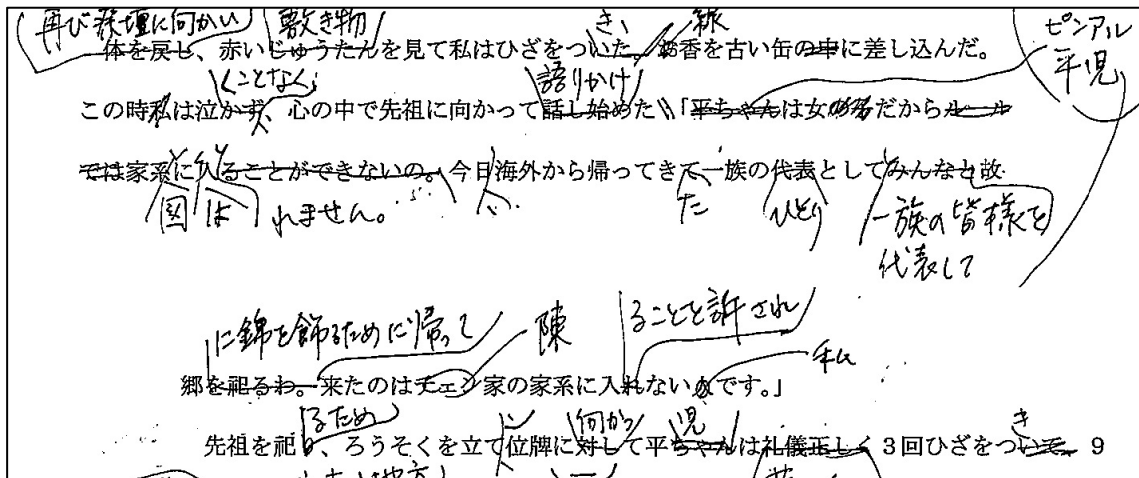 再び祭壇に向かい 敷き物 き、 線 ピンアル
体を戻し、赤いじゅうたんを見て私はひざをついた。お香を古い缶の中に差し込んだ。 平児
ことなく 語りかけ
この時私は泣かず、心の中で先祖に向かって話し始めた「平ちゃんは女だからルール
では家系に入ることができないの。今日海外から帰ってきて一族の代表としてみんなと故
図 は れません。 い た ひとり 一族の皆様を
代表して
に錦を飾るために帰って 陳 ることを許され
郷を祀るわ。来たのはチェン家の家系に入れないのです。」 私
るため 向かっ 児 き
先祖を祀り、ろうそくを立て位牌に対して平ちゃんは礼儀正しく3回ひざをついて、9